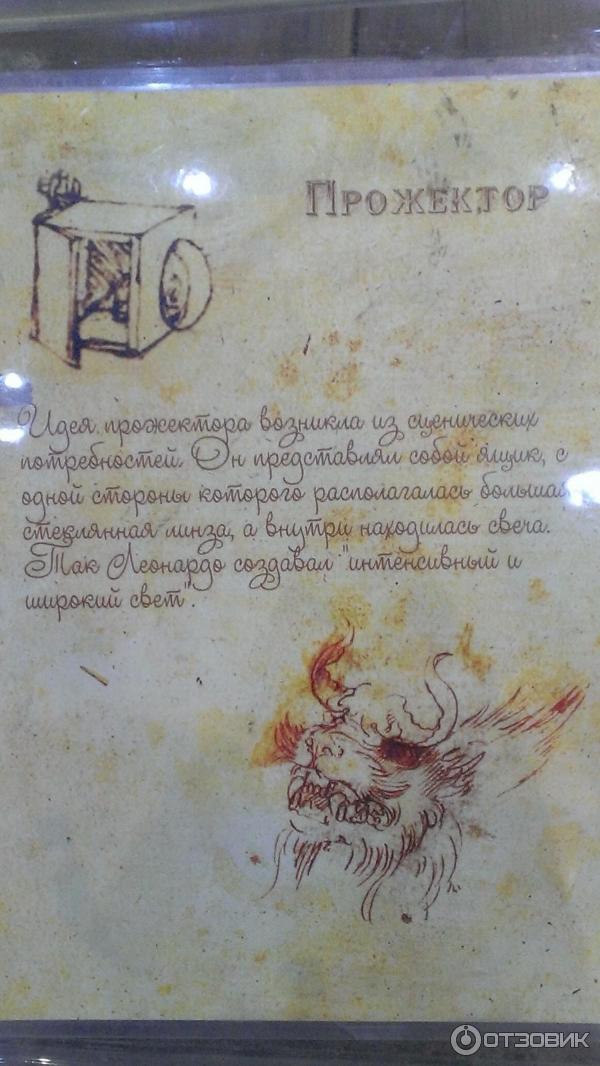 Прожектор
Идея прожектора возникла из сценических
потребностей. Он представлял собой ящик, с
одной стороны которого располагалась большая
стеклянная линза, а внутри находилась свеча.
Так Леонардо создавал "интенсивный и
широкий свет".
ОТЗОВИК